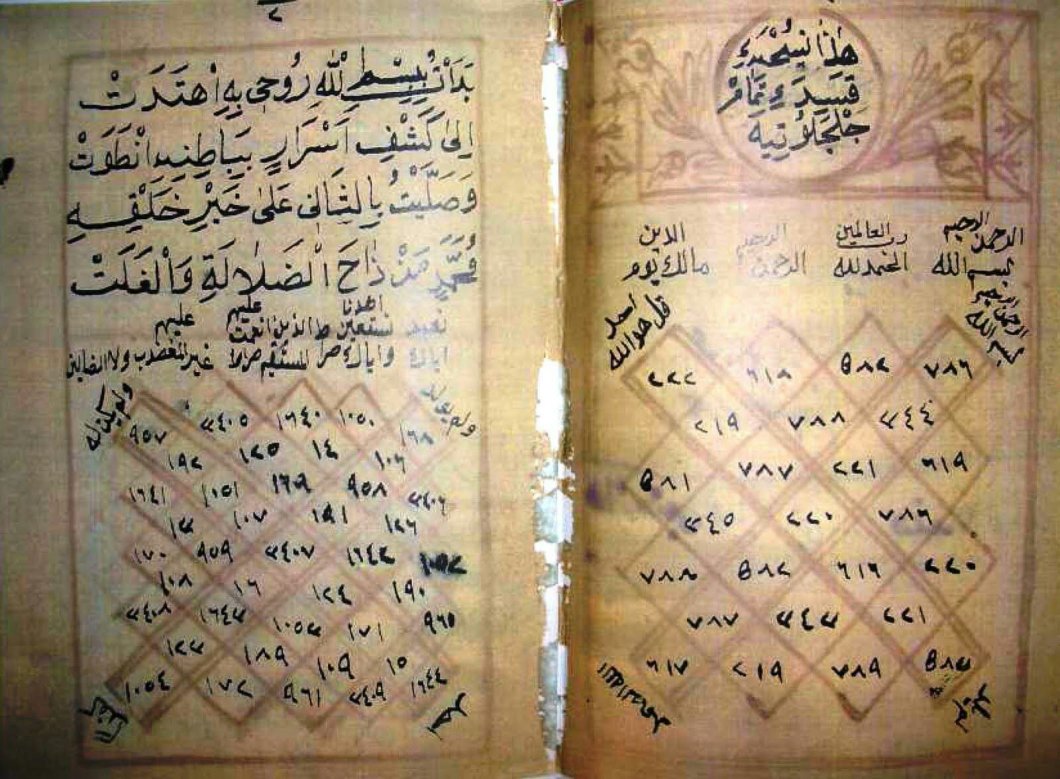 هٰذَا نُسْخَهءِ
قَسِيدَهءِ تَمَامْ
جَلْجَلُوتِيه
بسم الله الرحمن الرحيم الحمد لله رب العالمين الرحمن الرحيم مالك يوم الدين
بسم الله الرحمن الرحيم
قل هو الله احد
٧٨٦ ٥٨٢ ٦١٨ ٢٢٢
٣٤٤ ٧٨٨ ٢١٩
٦١٩ ٢٢١ ٧٨٧ ٥٨١
٧٨٦ ٢٢٠ ٣٤٥
٢٢٠ ٦١٦ ٥٨٢ ٧٨٨
٢٢١ ٣٤٣ ٧٨٧
٥٨٣ ٧٨٩ ٢١٩ ٦١٧
لم يلد
بَدَاْتُ بِبِسْمِ اللهِ رُوحِى بِهِ اِهْتَدَتْ
اِلىٰ كَشْفِ اَسْرَارٍ بِبَاطِنِهِ انْطَوَتْ
وَصَلَّيْتُ بِالثَّانى عَلىٰ خَيْرِ خَلْقِهِ
مُحَمَّدٍ مَنْ زَاحَ الْضَلاٰلَةِ وَالْغَلَتْ
اياك نعبد واياك نستعين اهدنا صراط المستقيم صراط الذين انعمت عليهم غير المغضوب عليهم ولا الضالين
ولم يولد
ولم يكن له
١٦٨ ١٠٥٠ ١٦٤٠ ٣٤٠٥ ٩٥٧
١٠٦ ١٤ ١٢٥ ١٩٢
٣٤٠٦ ٩٥٨ ١٦٩ ١٠٥١ ١٦٤١
١٢٦ ١٩١ ١٠٧ ١٣
١٠٥٢ ١٦٤٢ ٣٤٠٧ ٩٥٩ ١٧٠
١٩٠ ١٢٤ ١٦ ١٠٨
٩٦٠ ١٧١ ١٠٥٣ ١٦٤٣ ٣٤٠٨
١٥ ١٠٩ ١٨٩ ١٢٣
١٦٤٤ ٣٤٠٩ ٩٦١ ١٧٢ ١٠٥٤
احد